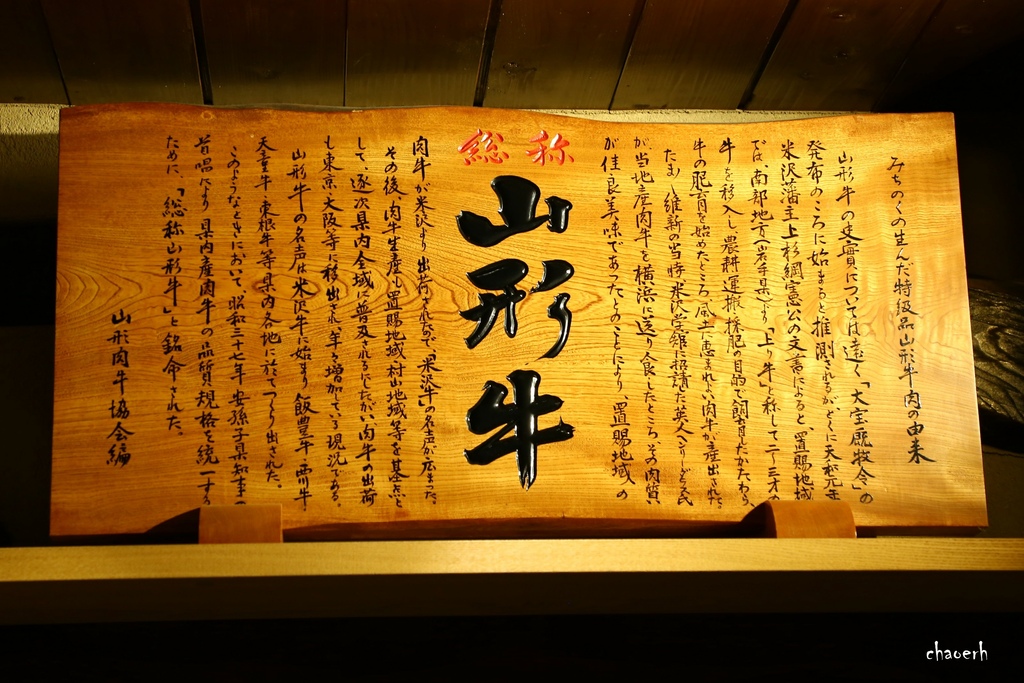 みちのくの生んだ特級品山形牛肉の由来
山形牛の史實については遠く「大宝厩牧令」の
発布のころに始まると推測されるが、とくに天和元年
米沢藩主上杉綱憲公の文書によると、置賜地域
では、南部地方(岩手県)より、「上り牛」と称して二~三才の
牛を移入し農耕、運搬、採肥の目的で飼育したかたわら、
牛の肥育を始めたところ風土に恵まれよい肉牛が産出された。
たまたま維新の当時、米沢興譲館に招請した英人ヘンリーダラス氏
が、当地産肉牛を横浜に送り食したところ、その肉質
が佳良美味であったとのことにより、「置賜地域」の
総称
山形牛
肉牛が米沢より出荷されたので「米沢牛」の名声が広まった。
その後、肉牛生産も置賜地域村山地域等を基点と
して、逐次県内全域に普及されるにしたがい肉牛の出荷
も東京、大阪等に移出され、年々増加している現況である。
山形牛の名声は米沢牛に始まり飯豊牛・西川牛・
天童牛・東根牛等県内各地に於てつくり出された。
このようなときにおいて昭和三十七年安孫子県知事の
首唱により県内産肉牛の品質規格を統一する
ために、「総称山形牛」と銘命された。
山形肉牛協会編
chaoerh